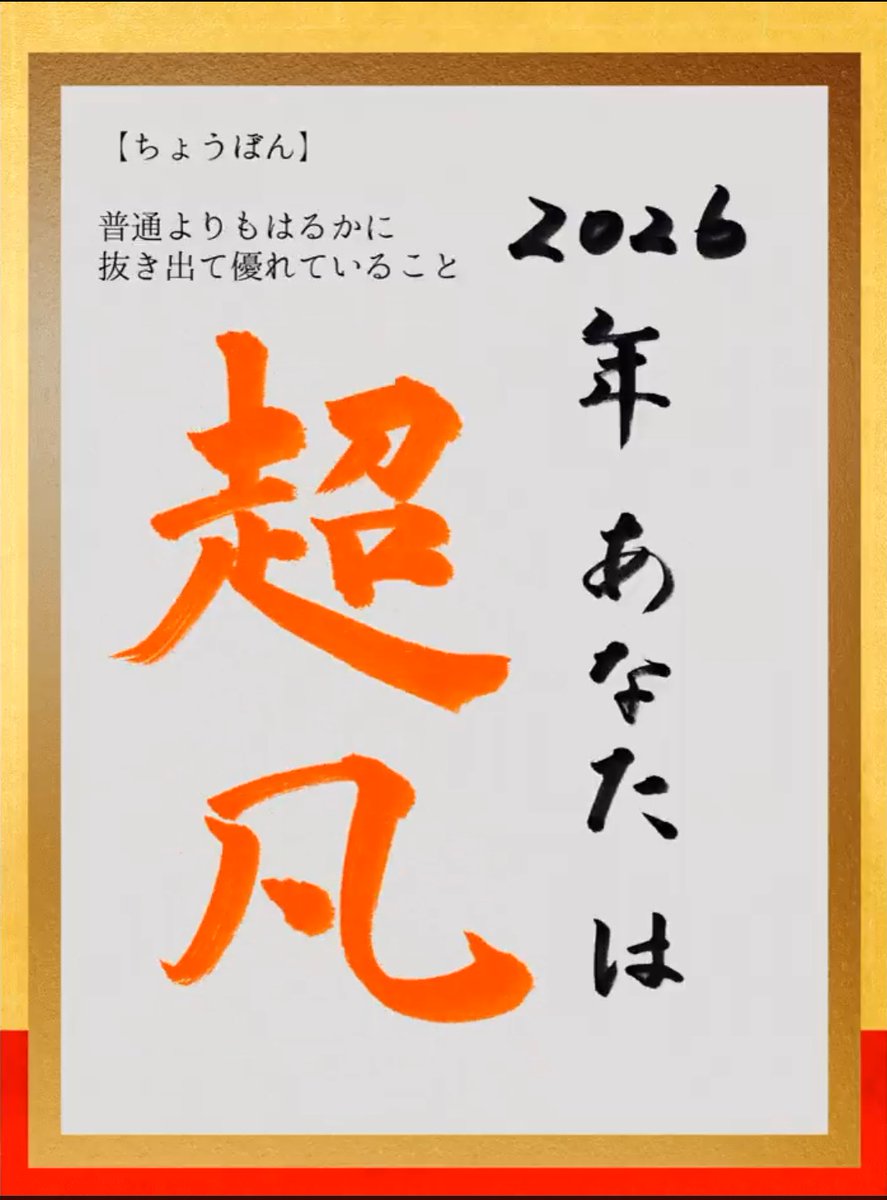 【ちょうぼん】
普通よりもはるかに
抜き出て優れていること
2026年 あなたは
超凡